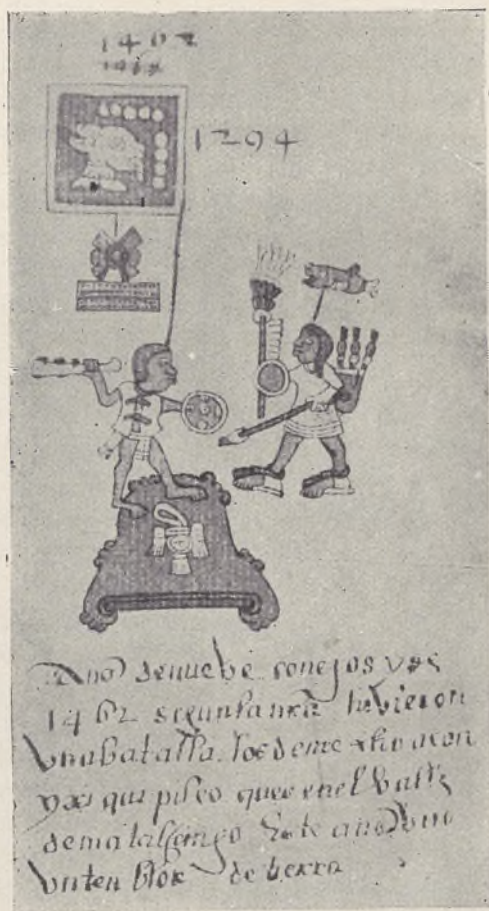 1462
1294
Año de nueve conejos y de
1462 segun la nra tuvieron
una batalla los de mexico con
xiquipilco ques en el valle
de matalçingo Este año uvo
un tenblor de tierra